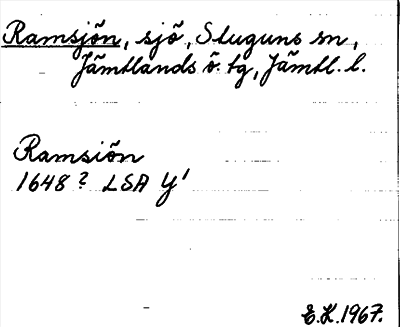 Ramsjön, sjö, Stuguns sn,
Jämtlands ö. tg, Jämtl. l.
Ramsiön
1648? LSA Y'
E.H. 1967.